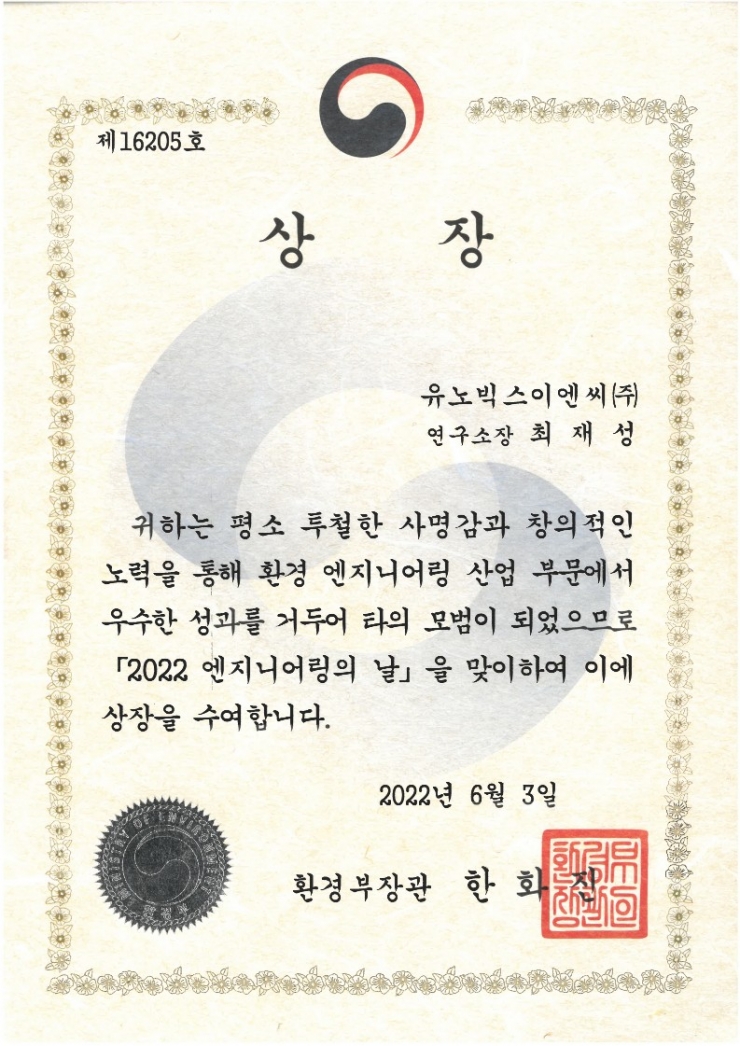 제16205호
상 장
유노빅스이엔씨(주)
연구소장 최 재 성
귀하는 평소 투철한 사명감과 창의적인
노력을 통해 환경 엔지니어링 산업 부문에서
우수한 성과를 거두어 타의 모범이 되었으므로
「2022 엔지니어링의 날」을 맞이하여 이에
상장을 수여합니다.
2022년 6월 3일
MINISTRY OF ENVIRONMENT
환경부
환경부장관 한 화 진